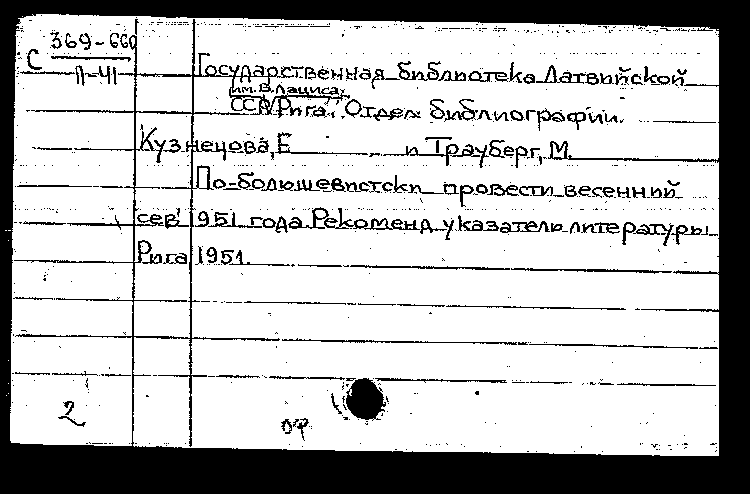 С 369-660
П-41
Государственная библиотека Латвийской
им. В. Лациса,
ССР, Рига. Отдел библиографии.
Кузнецова, Е и Трауберг, М.
По-большевистски провести весенний
сев 1951 года. Рекоменд указатель литературы
Рига 1951.
2